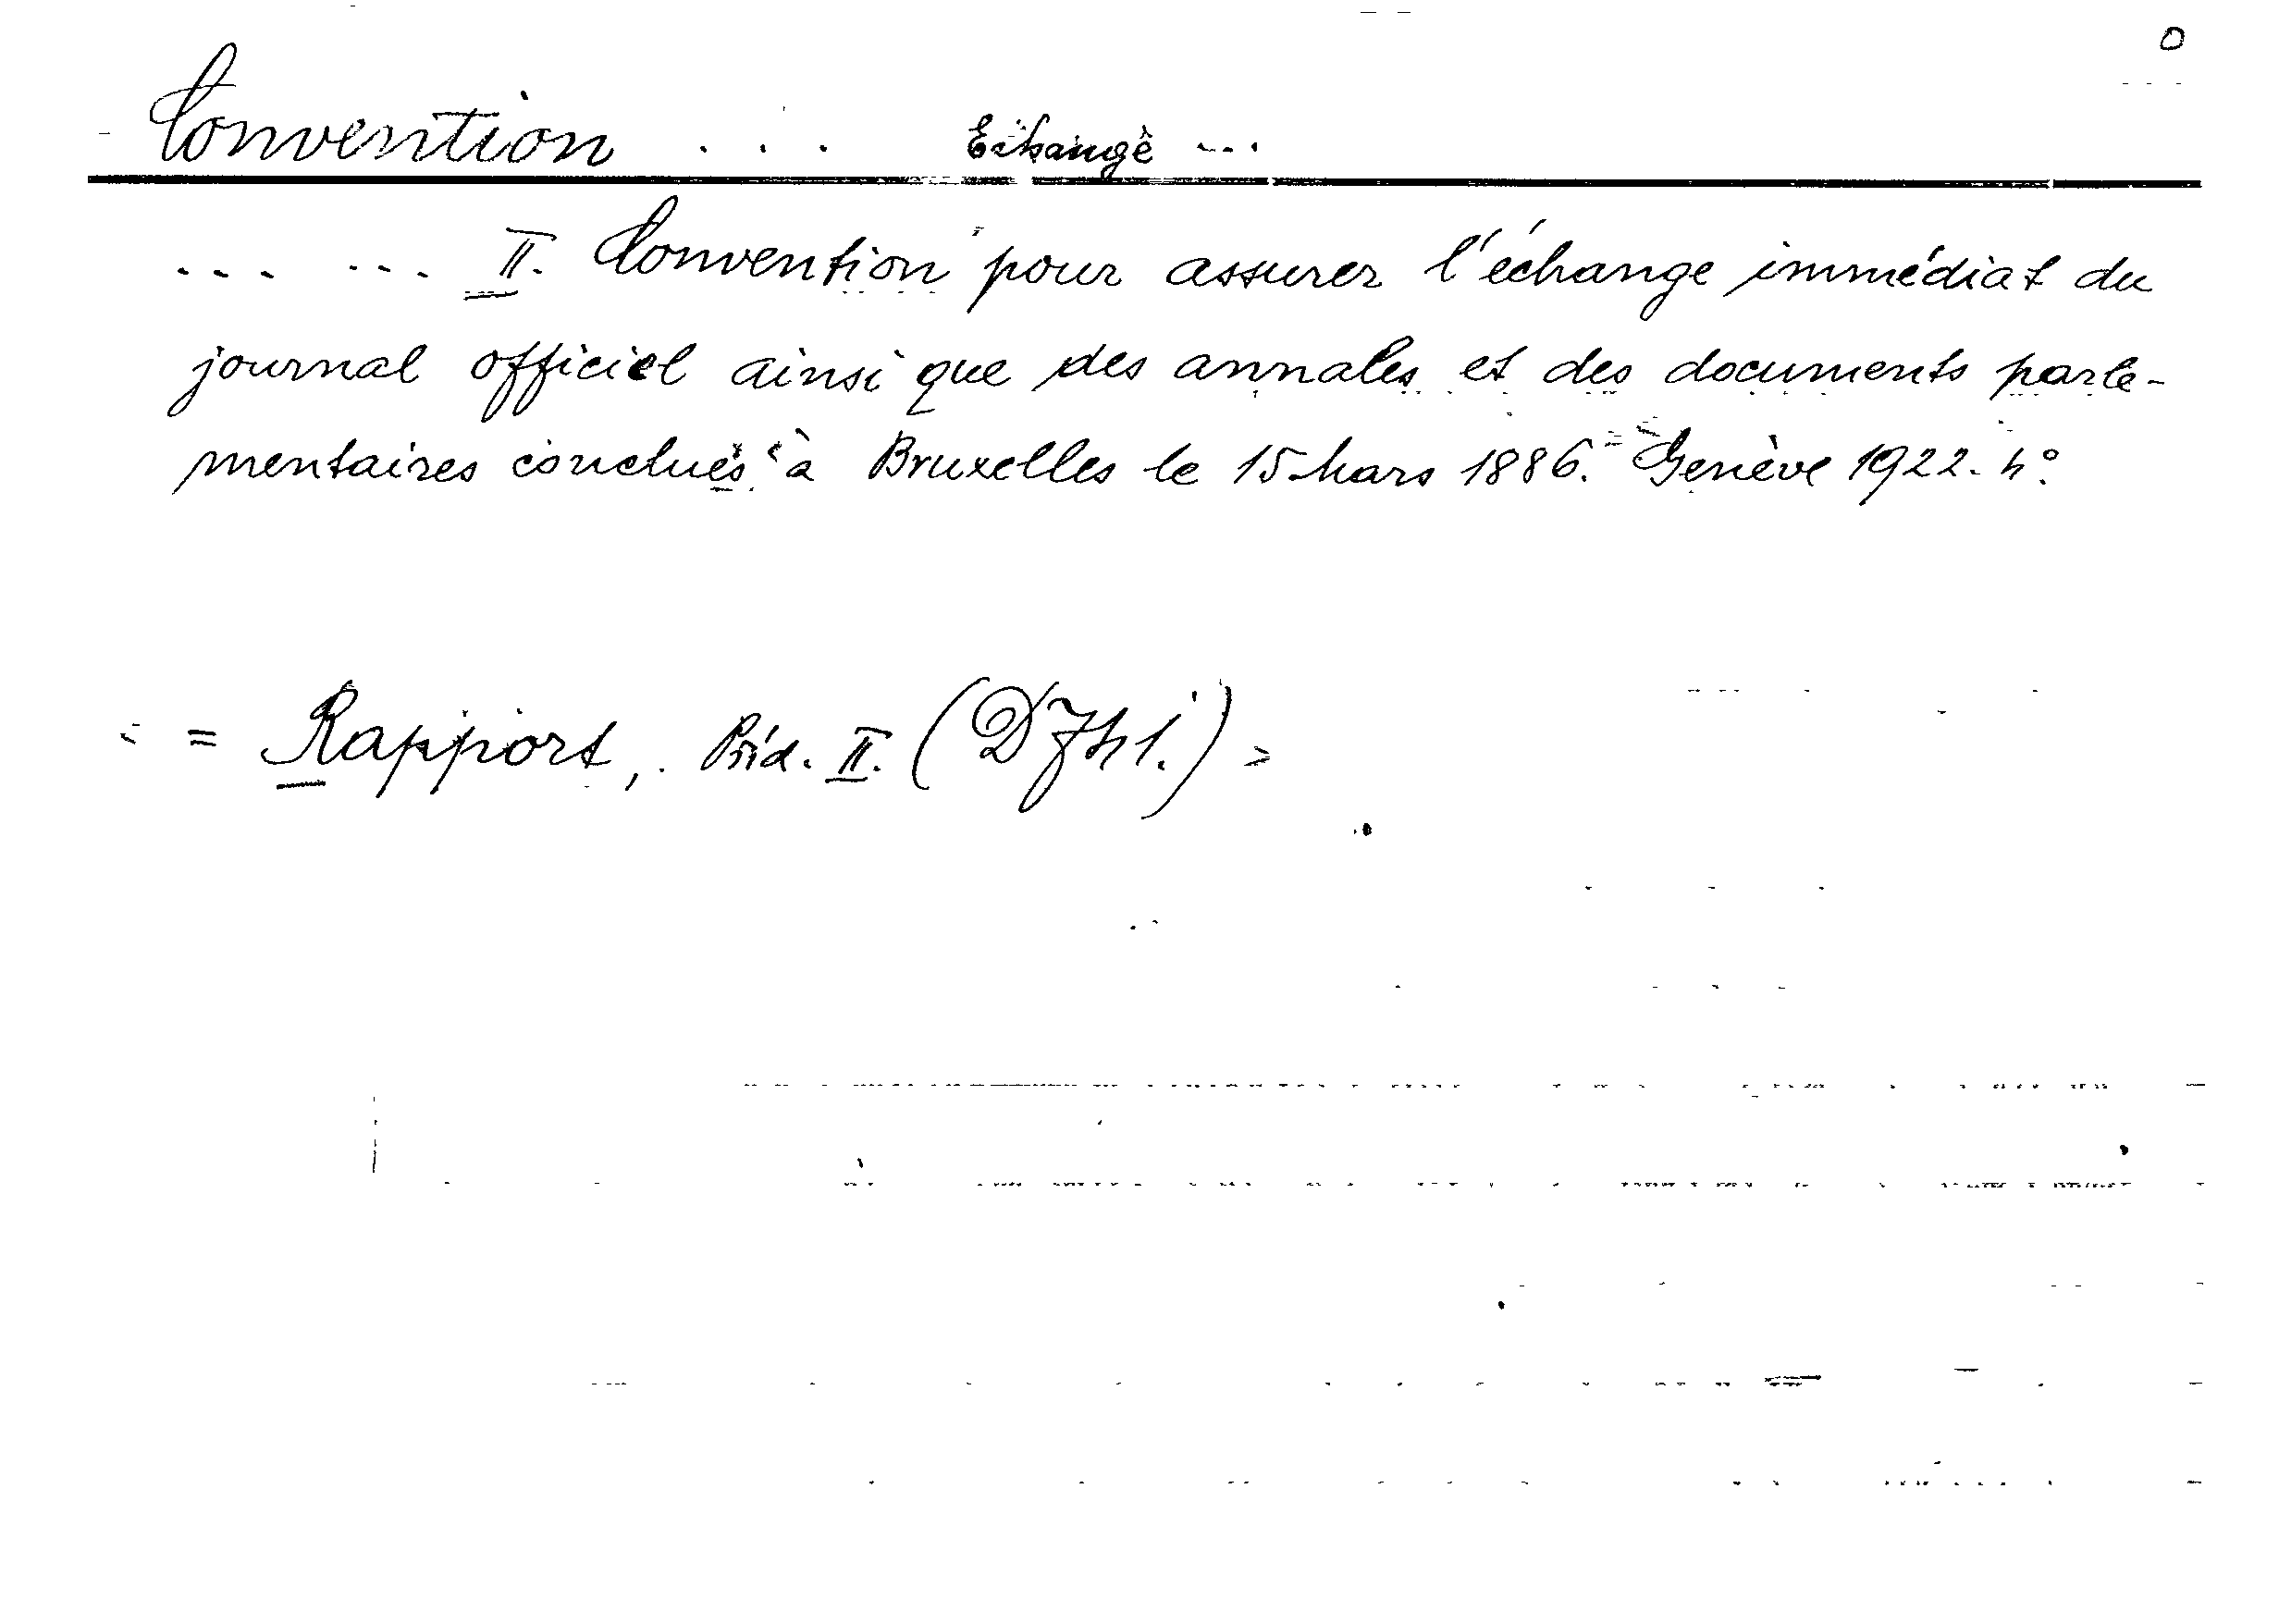 Convention . . . Echange ...
... ... II. Convention pour assurer l'échange immédiat du
journal officiel ainsi que des annales et des documents parle-
mentaires conclues à Bruxelles le 15 Mars 1886. Genève 1922. 4°.
= Rapport, II. =